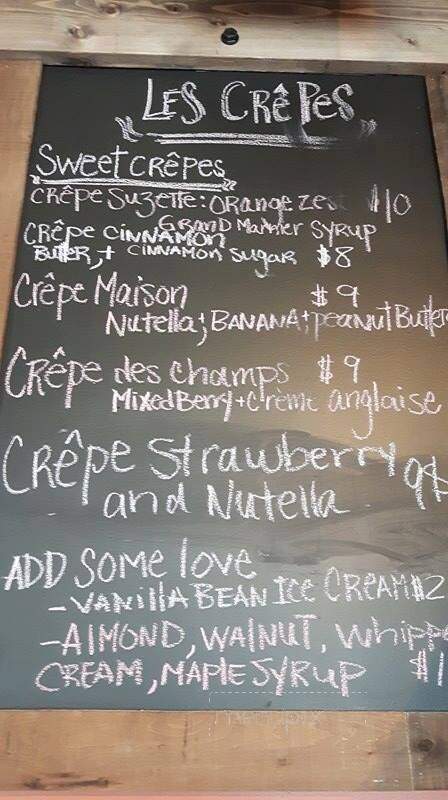 LES CRÊPES
Sweet crêpes
CRÊPE SUZETTE: ORANGE ZEST $10
GRAND Marnier SYRUP
CRÊPE CINNAMON
BUTTER, + CINNAMON SUGAR $8
CRÊPE MAISON $9
Nutella + BANANA + peanut Butter
CRÊPE des champs $9
Mixed Berry + Crème anglaise
CRÊPE Strawberry 9$
and Nutella
ADD SOME love
- VANIlla BEAN ICE CREAM $2
- AlMOND, WAlNUT, Whipp
CREAM, MAPLE SYRUP $1